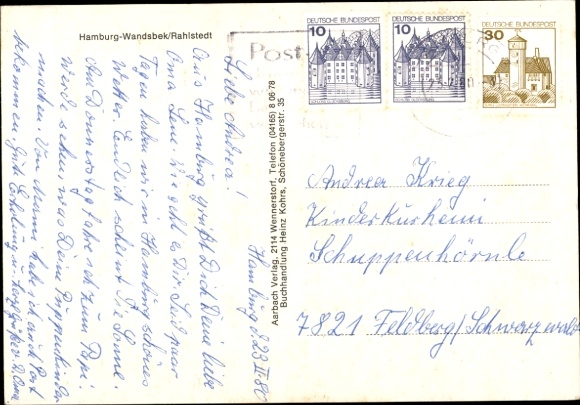 Hamburg-Wandsbek/Rahlstedt
Hamburg d 23 II. 80
Liebe Andrea!
Aus Hamburg grüßt Dich Deine liebe
Oma Lene. Wie geht es Dir. Seit paar
Tagen haben wir in Hamburg schönes
Wetter. Endlich scheint Die Sonne.
Am Donnerstag fahre ich zum Papi.
Werde sehen was Deine Puppenkinder
machen. Von Mami habe ich auch Post
bekommen. Gute Erholung u. herzl. Grüße D. Oma
Aarbach Verlag, 2114 Wennerstorf, Telefon (04165) 8 06 78
Buchhandlung Heinz Kohrs, Schönebergerstr. 35
Post
DEUTSCHE BUNDESPOST
10
DEUTSCHE BUNDESPOST
10
DEUTSCHE BUNDESPOST
30
Andrea Krieg
Kinderkurheim
Schuppenhörnle
7821 Feldberg/Schwarzwald